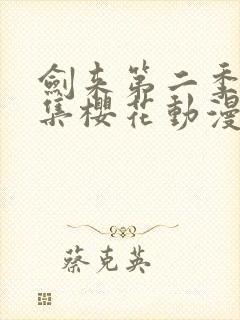 劍來第二季
集櫻花動漫
蔡克英